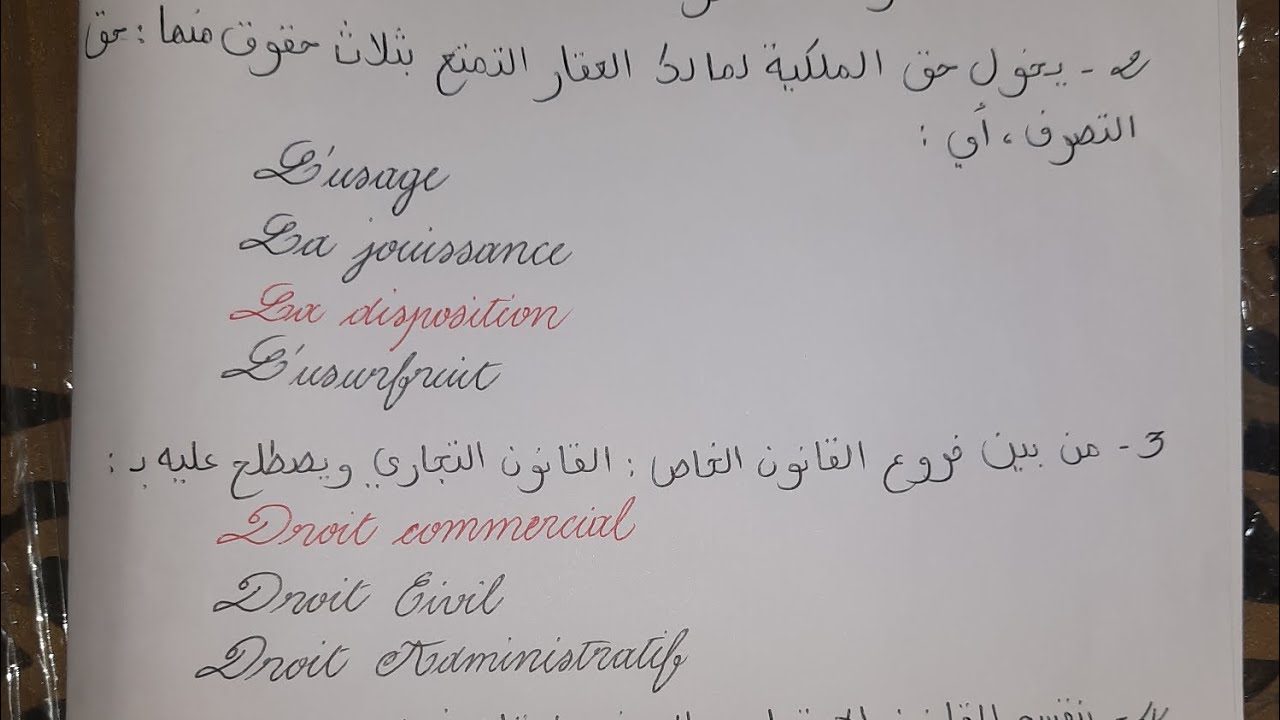 2- يخول حق الملكية لمالك العقار التمتع بثلاث حقوق منها : حق
التصرف ، أي :
L'usage
La jouissance
La disposition
L'usurfruit
3- من بين فروع القانون الخاص : القانون التجاري ويصطلح عليه بـ :
Droit commercial
Droit Civil
Droit Administratif